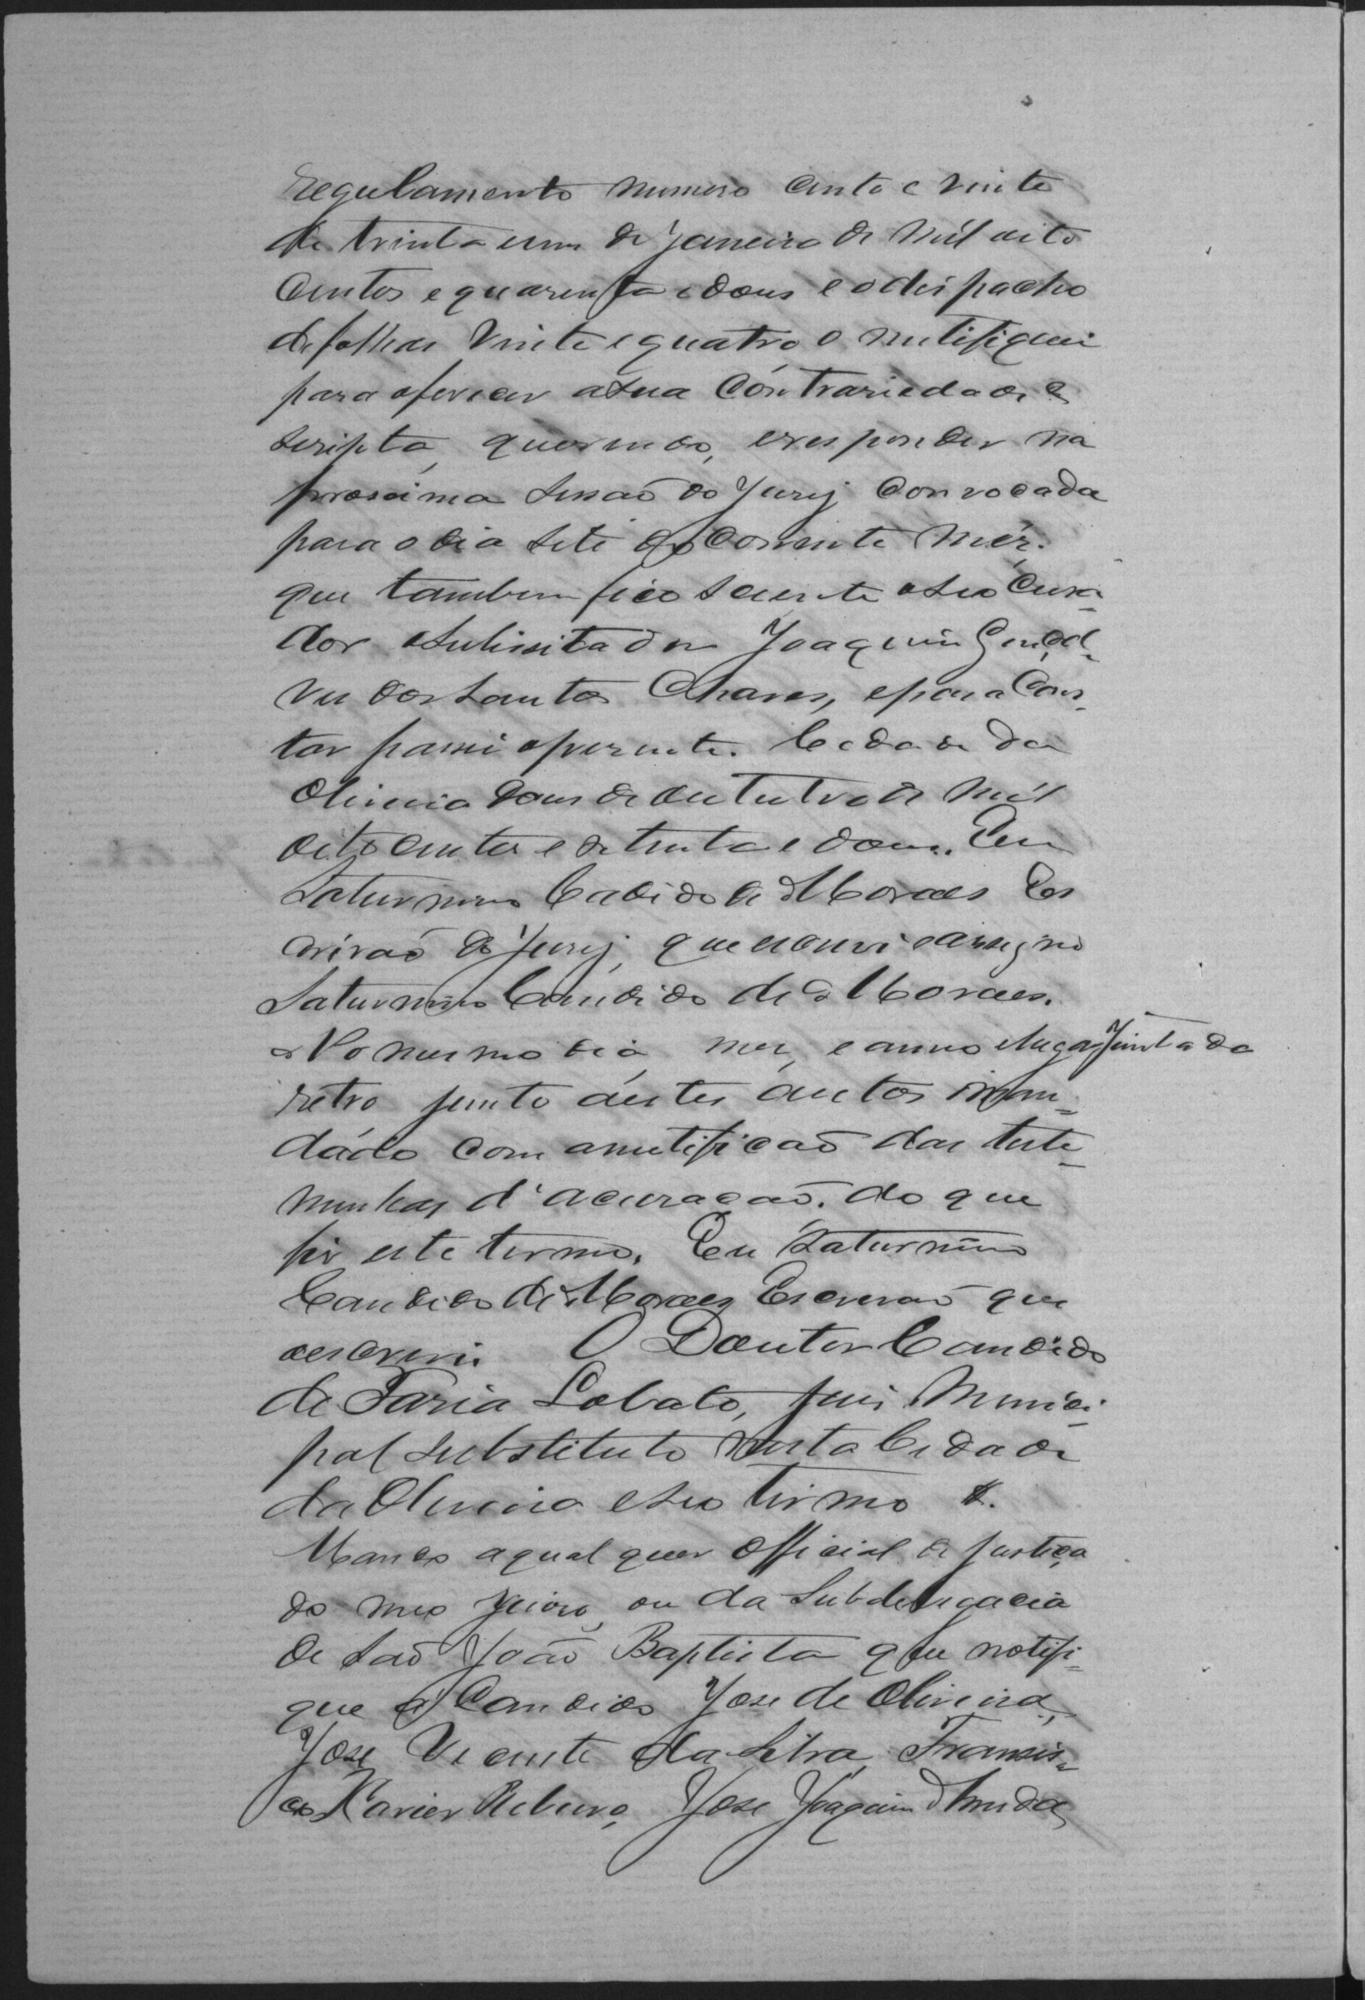 regulamento numero cento e vinte
de trinta eum de Janeiro de mil oito
centos e quarenta e dous e odespacho
defolhas vinte equatro o nutifiquei
para oferecer asua contrariedade es
scripta, querendo, eresponder na
proscima sessaõ do Jury convocada
para o dia sete do corrente mêz.
que tambem fica sciente oseo Cura-
dor esulicitador Joaquim
dos Santos Chaves, epara Cons-
tar passei apresente. Cedade da
Oliveira dous de outubro de mil
oitocentos e setenta e dous. Eu
Saturnino Cadido de Moraes Es
crivaõ do Jury, que escrevi eassigno
Saturnino Candido de Moraes.
No mesmo dia, mez, e anno elugar Juntada
retro junto áestes autos oman-
dádo com anutificaõ das teste-
munhas d'acuzaçaõ. do que
fiz este termo. Eu Saturnino
Candido de Moraes Escrivaõ que
oescrevi. O Doutor Candido
de Faria Lobato, Juis Munici-
pal substituto nesta Cidade
da Oliveira eseo termo &.
Mando aqual quer official de justiça
do meo juizo, ou da Subdelegacia
de Saõ Joaõ Baptista que notifi-
que a Candido Jose de Oliveira,
Jose Vicente da Silva, Francis-
co Xavier Ribeiro, Jose Joaquim d'Arruda,